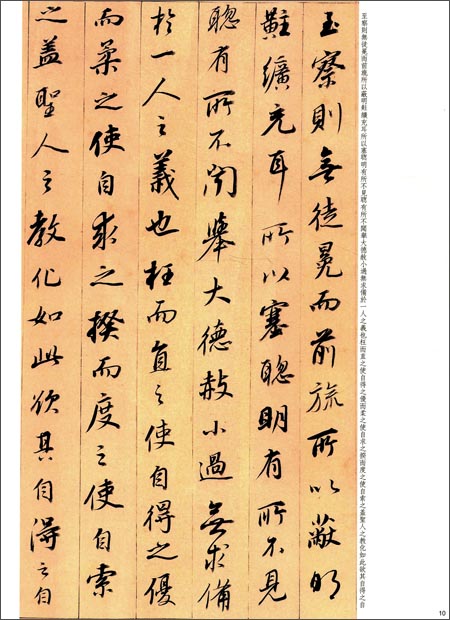 至察則無徒冕而前旒所以蔽明黈纊充耳所以塞聰明有所不見聰有所不聞舉大德赦小過無求備於一人之義也枉而直之使自得之優而柔之使自求之揆而度之使自索之蓋聖人之教化如此欲其自得之自
至察則無徒冕而前旒所以蔽明
黈纊充耳所以塞聰明有所不見
聰有所不聞舉大德赦小過無求備
於一人之義也枉而直之使自得之優
而柔之使自求之揆而度之使自索
之蓋聖人之教化如此欲其自得之自
10